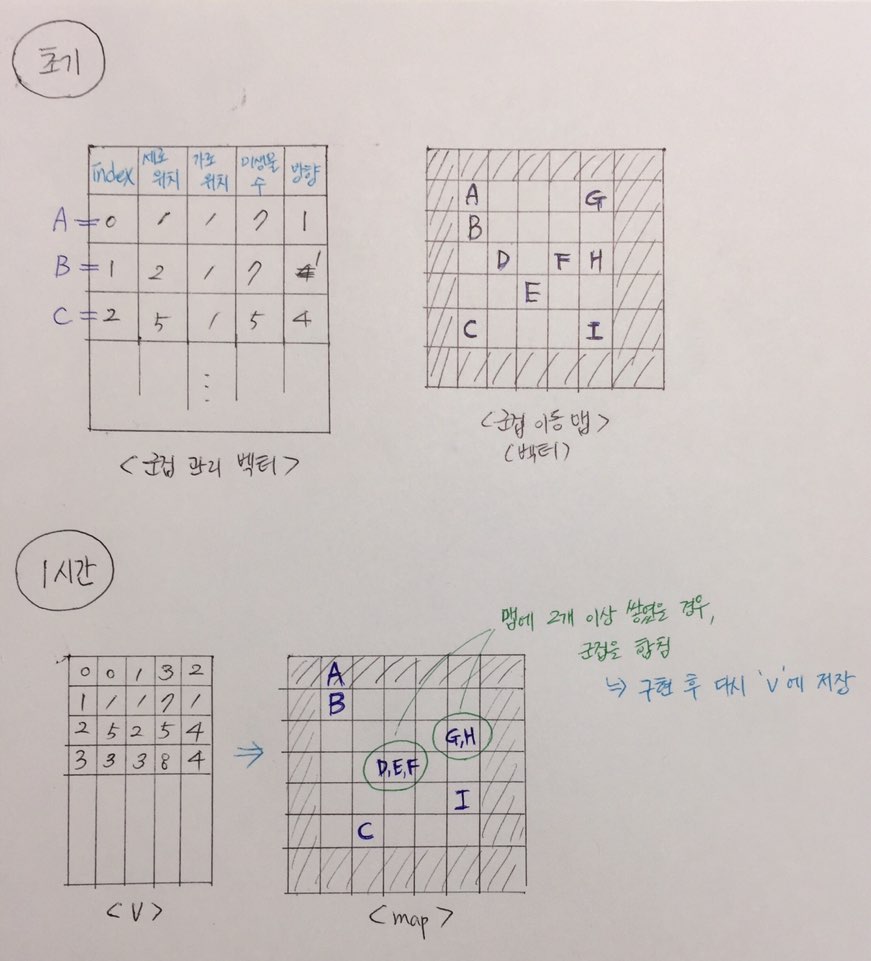 초기
index 세로 위치 가로 위치 미생물 수 방향
A = 0 1 1 7 1
B = 1 2 1 7 1
C = 2 5 1 5 4
⋮
<군집 관리 벡터>
A G
B
D F H
E
C I
<군집 이동 맵>
(벡터)
1시간
맵에 2개 이상 쌓였을 경우,
군집을 합침
↳ 구현 후 다시 'v'에 저장
0 0 1 3 2
1 1 1 7 1
2 5 2 5 4
3 3 3 8 4
<V>
⇒
A
B
G,H
D,E,F
I
C
<map>